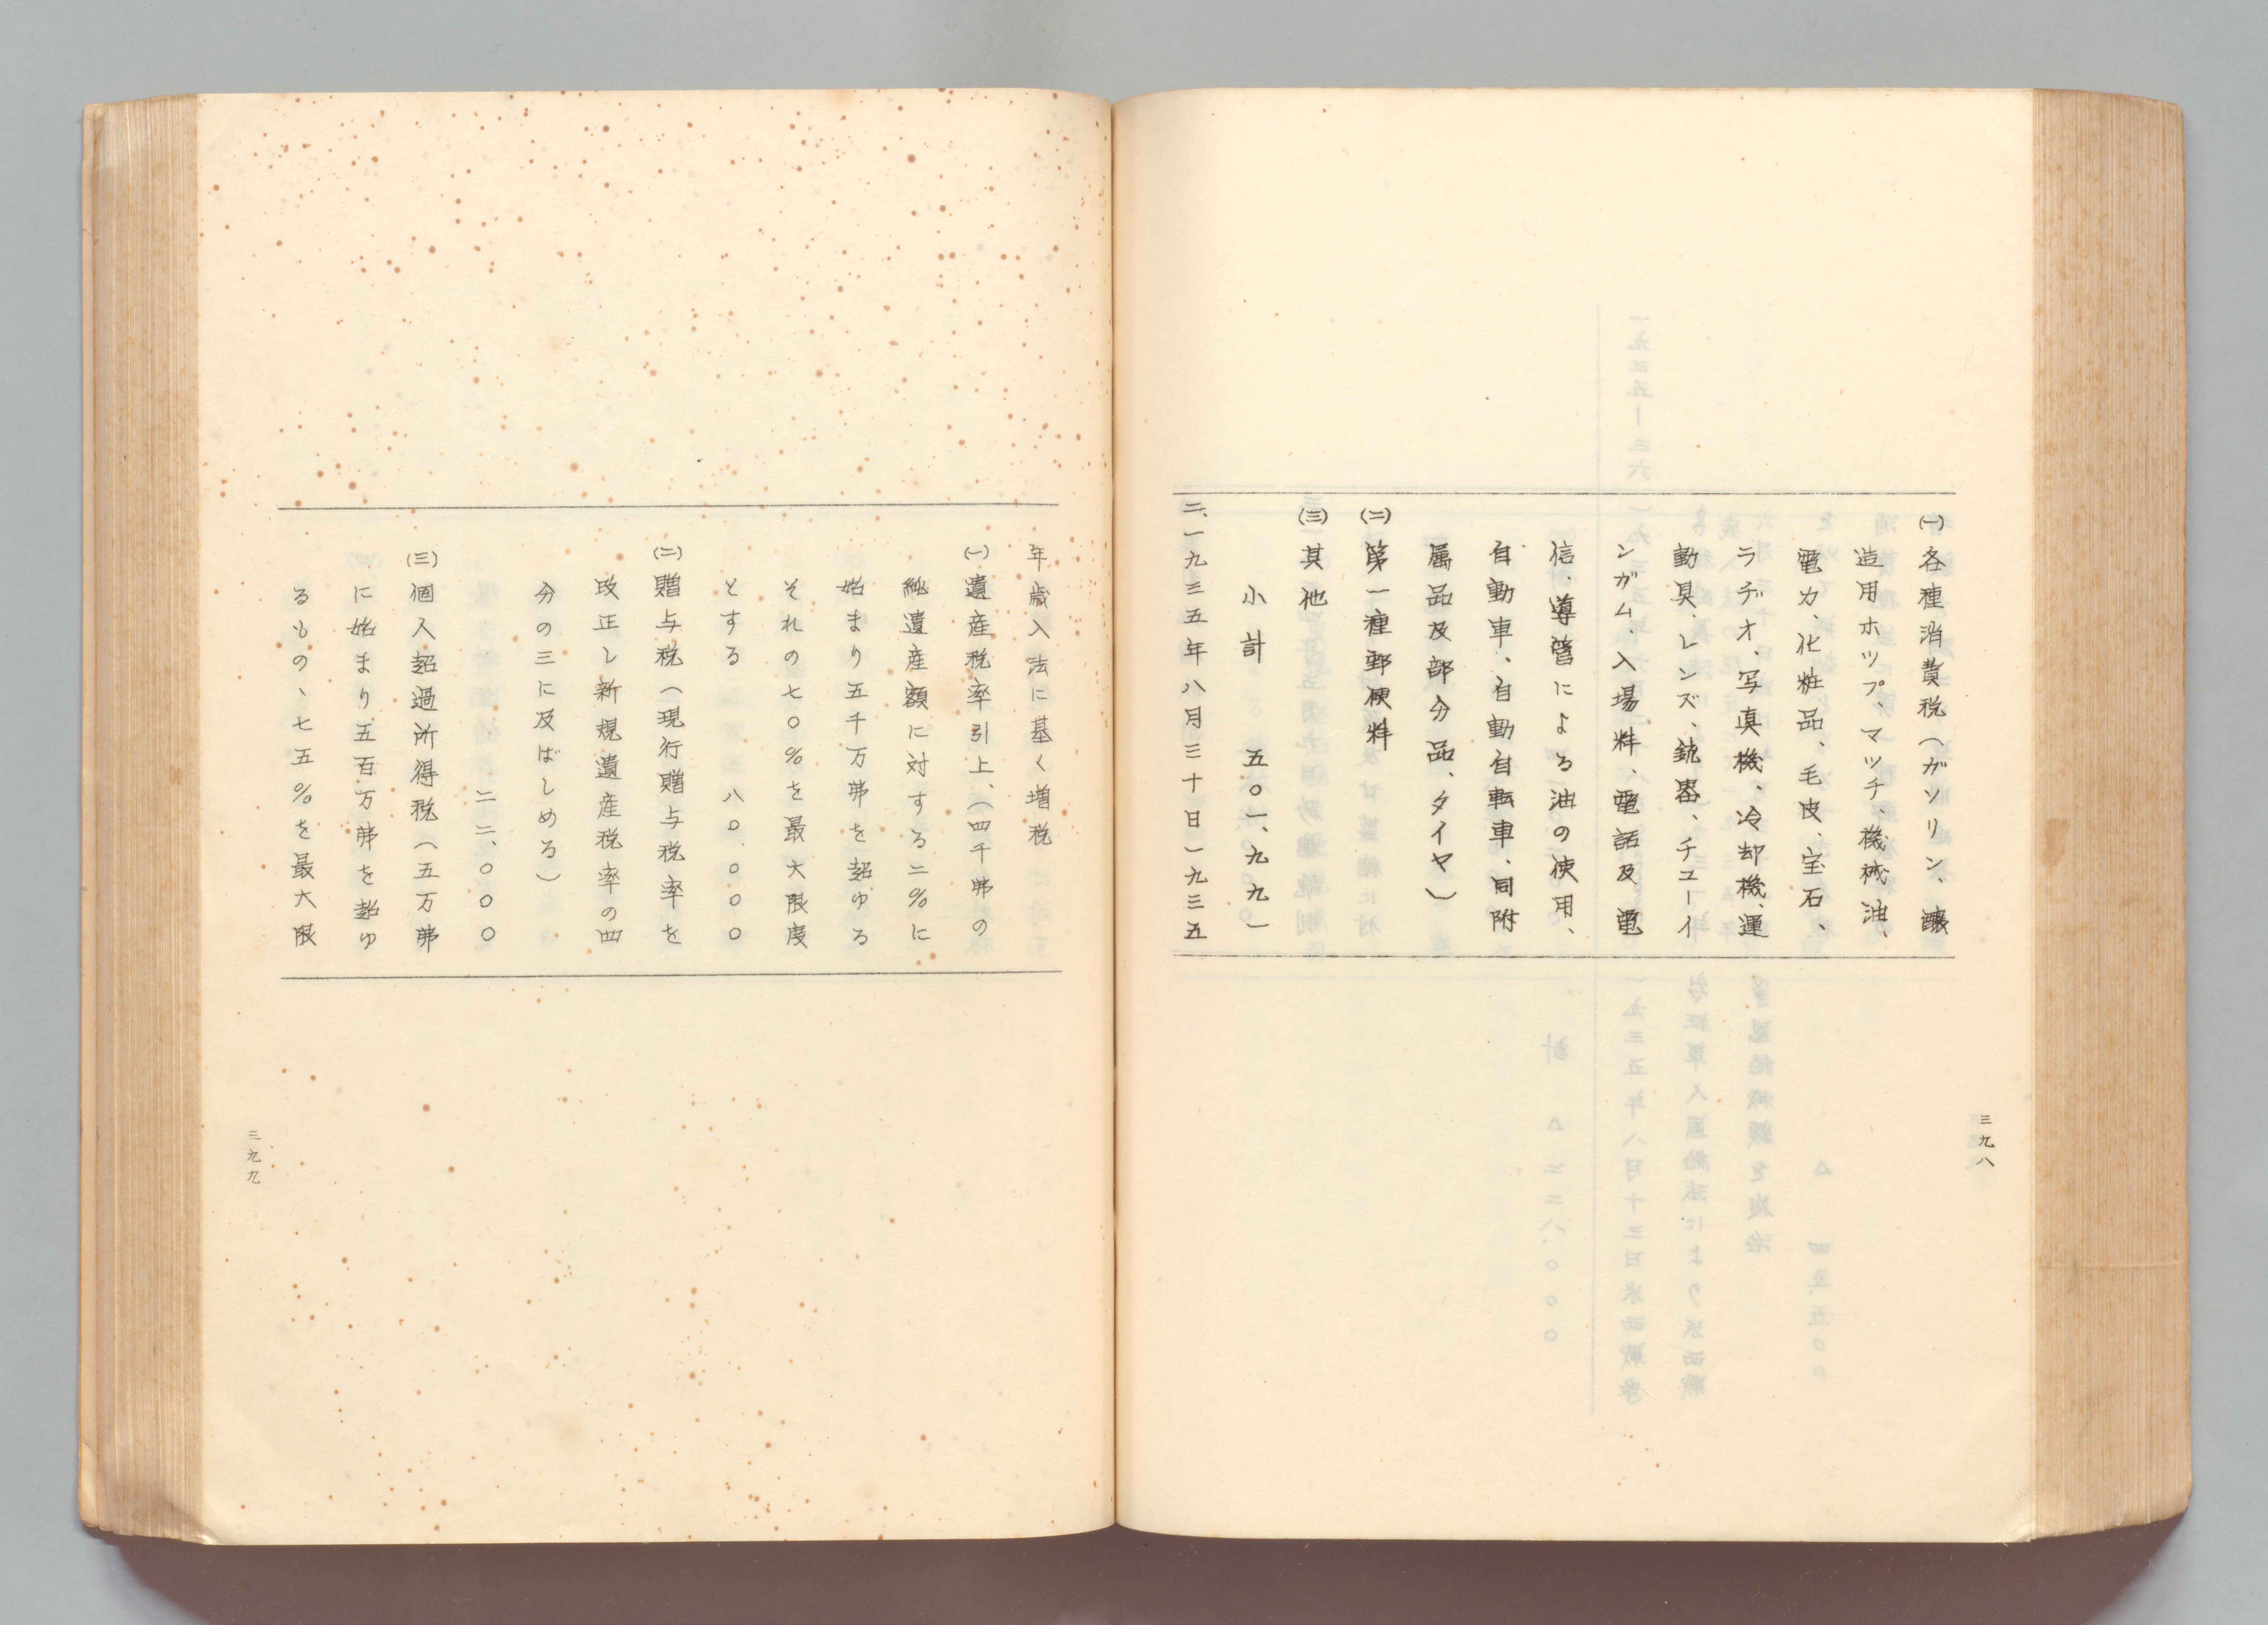 三九八
㈠各種消費税(ガソリン、醸
造用ホツプ、マツチ、機械油、
電力、化粧品、毛皮、宝石、
ラヂオ、写真機、冷却機、運
動具、レンズ、銃器、チユーイ
ンガム、入場料、電話及電
信、導管による油の使用、
自動車、自動自転車、同附
属品及部分品、タイヤ)
㈡第一種郵便料
㈢其他
小計 五〇一、九九一
二、一九三五年八月三十日一九三五
年歳入法に基く増税
㈠遺産税率引上、(四千弗の
純遺産額に対する二%に
始まり五千万弗を超ゆる
それの七〇%を最大限度
とする 八〇.〇〇〇
㈡贈与税(現行贈与税率を
改正し新規遺産税率の四
分の三に及ばしめる)
二二、〇〇〇
㈢個人超過所得税(五万弗
に始まり五百万弗を超ゆ
るもの、七五%を最大限
三九九